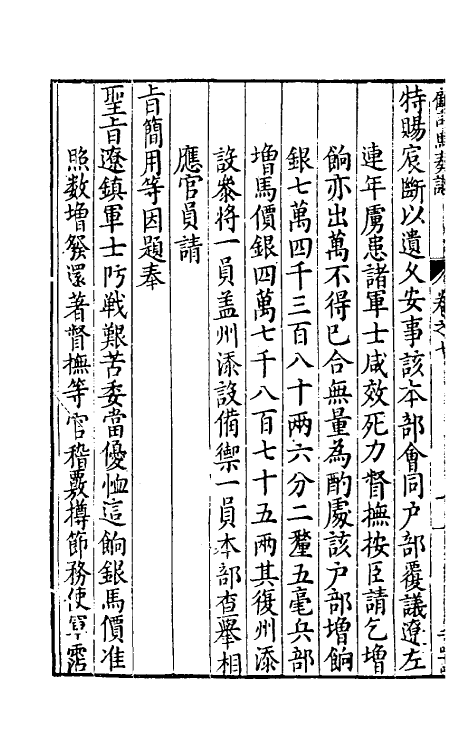 特賜宸斷以遺久安事該本部會同户部覆議遼左
連年虜患諸軍士咸效死力督撫按臣請乞增
餉亦出萬不得已合無量為酌處該户部增餉
銀七萬四千三百八十兩六分二釐五毫兵部
增馬價銀四萬七千八百七十五兩其復州添
設叅將一員盖州添設備禦一員本部查舉相
應官員請
旨簡用等因題奉
聖旨遼鎮軍士防戰艱苦委當優恤這餉銀馬價准
照數增發還著督撫等官稽覈撙節務使軍霑
卷之七